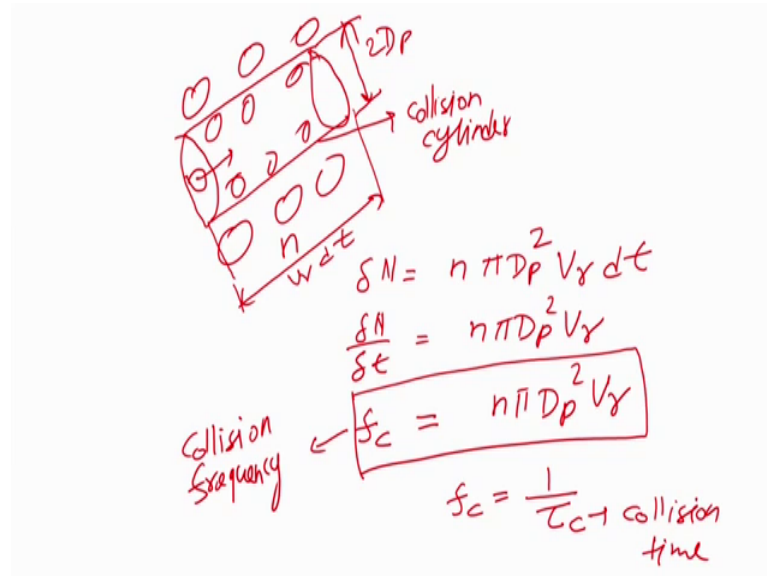 2Dp
collision
cylinder
n
Vr dt
δN = n π Dp² Vr dt
δN/δt = n π Dp² Vr
fc = n π Dp² Vr
collision
frequency
fc = 1/τc → collision
time